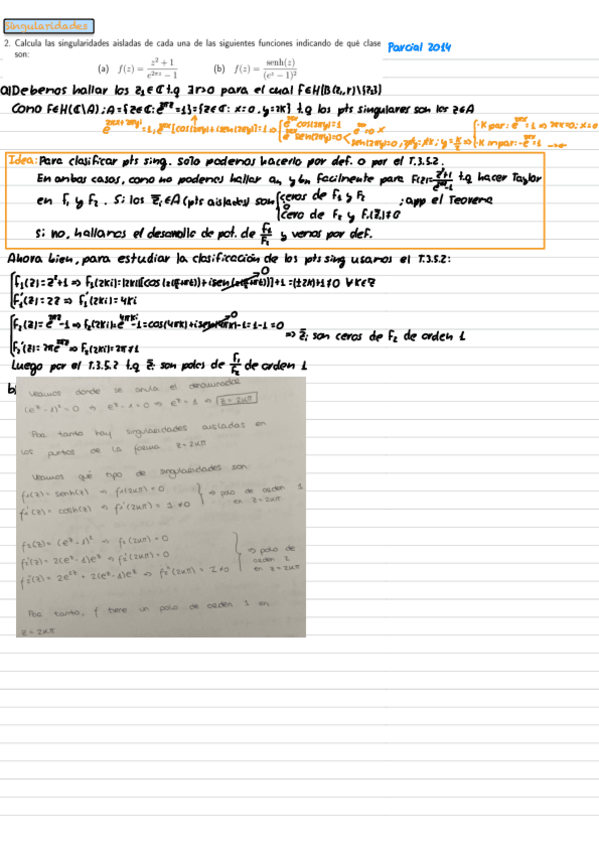 Singularidades
2. Calcula las singularidades aisladas de cada una de las siguientes funciones indicando de qué clase
son:
Parcial 2014
(a) f(z) = (z² + 1)/(e^{2πz} − 1) (b) f(z) = senh(z)/(e^z − 1)²
a) Debemos hallar los z₁∈ℂ t.q ∃r>0 para el cual f∈H(B(z₁,r)\{z₁})
Como f∈H(ℂ\A); A={z∈ℂ: e^{2πz}=1}={z∈ℂ: x=0, y=2K} t.q los pts singulares son los z∈A
Idea: Para clasificar pts sing. solo podemos hacerlo por def. o por el T.3.5.2.
En ambos casos, como no podemos hallar aₙ y bₙ facilmente para f(z)=(z²+1)/(e^{2πz}-1) t.q hacer Taylor
en F₁ y F₂. Si los z̃ᵢ∈A (pts aislados) son {ceros de F₁ y F₂
{cero de F₂ y F₁(z̃ᵢ)≠0 ; app el Teorema
Si no, hallamos el desarrollo de pot. de F₁/F₂ y vemos por def.
Ahora bien, para estudiar la clasificación de los pts sing usamos el T.3.5.2:
F₁(z)=z²+1 ⇒
F₁'(z)=2z ⇒ F₁'(2Ki)=4Ki
F₂(z)=e^{2πz}-1 ⇒ F₂(2Ki)=e^{4πKi}-1=cos(4πK)+isen(4πK)-1=1-1=0
⇒ z̃ᵢ son ceros de F₂ de orden 1
F₂'(z)=2πe^{2πz} ⇒ F₂'(2Ki)=2π≠1
Luego por el T.3.5.2 t.q z̃ᵢ son polos de F₁/F₂ de orden 1
b)
Veamos donde se anula el denominador
(e^z - 1)² = 0 ⇒ e^z - 1 = 0 ⇒ e^z = 1 ⇒ z = 2kπ
Por tanto hay singularidades aisladas en
los puntos de la forma z = 2kπ
Veamos qué tipo de singularidades son
f₁(z) = senh(z) ⇒ f₁(2kπ) = 0
f₁'(z) = cosh(z) ⇒ f₁'(2kπ) = 1 ≠ 0
⇒ polo de orden 1
en z = 2kπ
f₂(z) = (e^z - 1)² ⇒ f₂(2kπ) = 0
f₂'(z) = 2(e^z - 1)e^z ⇒ f₂'(2kπ) = 0
f₂''(z) = 2e^{2z} + 2(e^z - 1)e^z ⇒ f₂''(2kπ) = 2 ≠ 0
⇒ polo de
orden 2
en z = 2kπ
Por tanto, f tiene un polo de orden 1 en
z = 2kπ